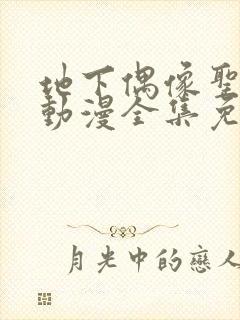 地下偶像聖
動漫全集免
月光中的戀人